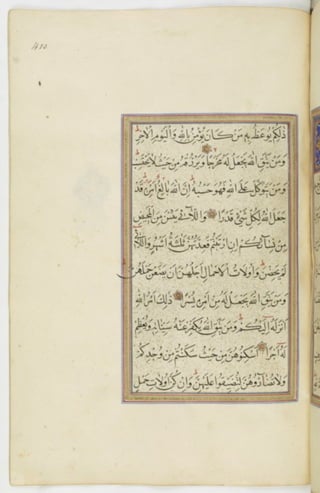 410
ذلكم يوعظ به من كان يؤمن بالله واليوم الاخر
ومن يتق الله يجعل له مخرجا ويرزقه من حيث لا يحتسب
ومن يتوكل على الله فهو حسبه ان الله بالغ امره قد
جعل الله لكل شئ قدرا واللائى يئسن من المحيض
من نسائكم ان ارتبتم فعدتهن ثلثة اشهر واللائى
لم يحضن واولات الاحمال اجلهن ان يضعن حملهن
ومن يتق الله يجعل له من امره يسرا ذلك امر الله
انزله اليكم ومن يتق الله يكفر عنه سيئاته ويعظم
له اجرا اسكنوهن من حيث سكنتم من وجدكم
ولا تضاروهن لتضيقوا عليهن وان كن اولات حمل